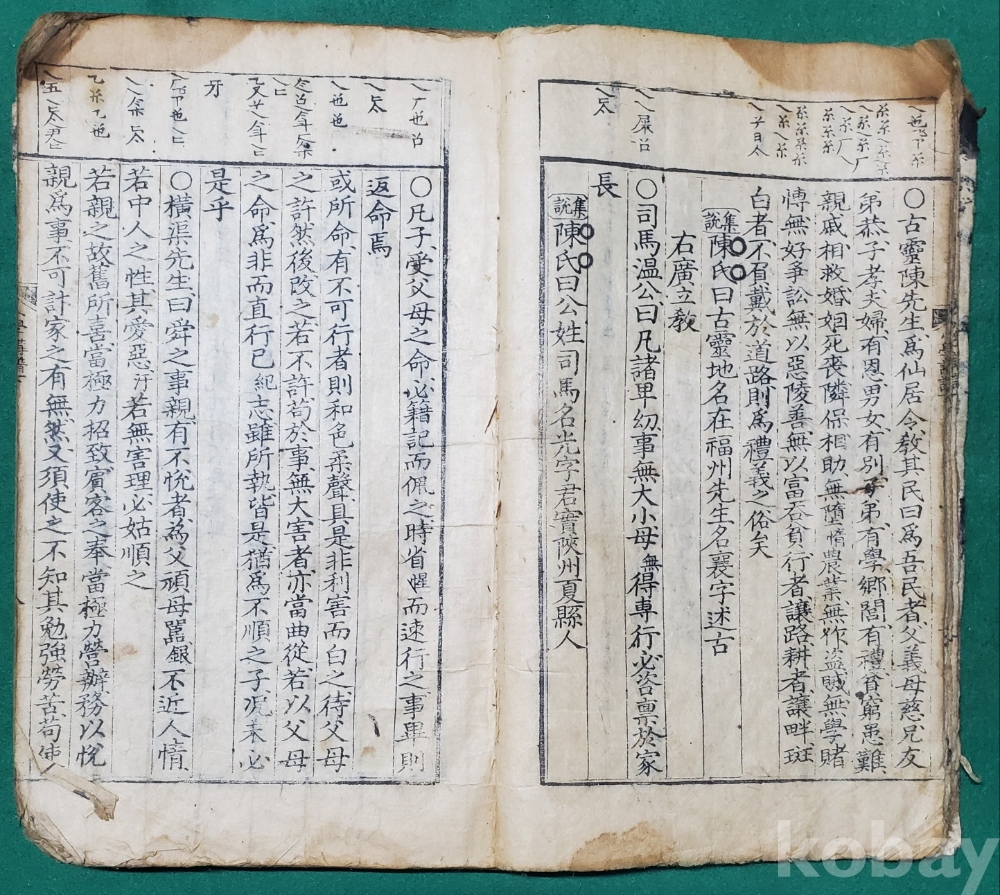 〇古靈陳先生爲仙居令教其民曰爲吾民者父義母慈兄友
弟恭子孝夫婦有恩男女有別子弟有學鄕閭有禮貧窮患難
親戚相救婚姻死喪隣保相助無墮惰農業無作盜賊無學賭
愽無好爭訟無以惡陵善無以富呑貧行者讓路耕者讓畔斑
白者不負戴於道路則爲禮義之俗矣
集說陳氏曰古靈地名在福州先生名襄字述古
右廣立教
〇司馬溫公曰凡諸卑幼事無大小母無得專行必咨禀於家
長
集說陳氏曰公姓司馬名光字君實陝州夏縣人
〇凡子受父母之命必籍記而佩之時省醒而速行之事畢則
返命焉
或所命有不可行者則和色柔聲具是非利害而白之待父母
之許然後改之若不許苟於事無大害者亦當曲從若以父母
之命爲非而直行已紀志雖所執皆是猶爲不順之子况未必
是乎
〇橫渠先生曰舜之事親有不悅者爲父頑母嚚銀不近人情
若中人之性其愛惡汙若無害理必姑順之
若親之故舊所喜當極力招致賓客之奉當極力營辦務以悅
親爲事不可計家之有無然又須使之不知其勉強勞苦苟使
kobay